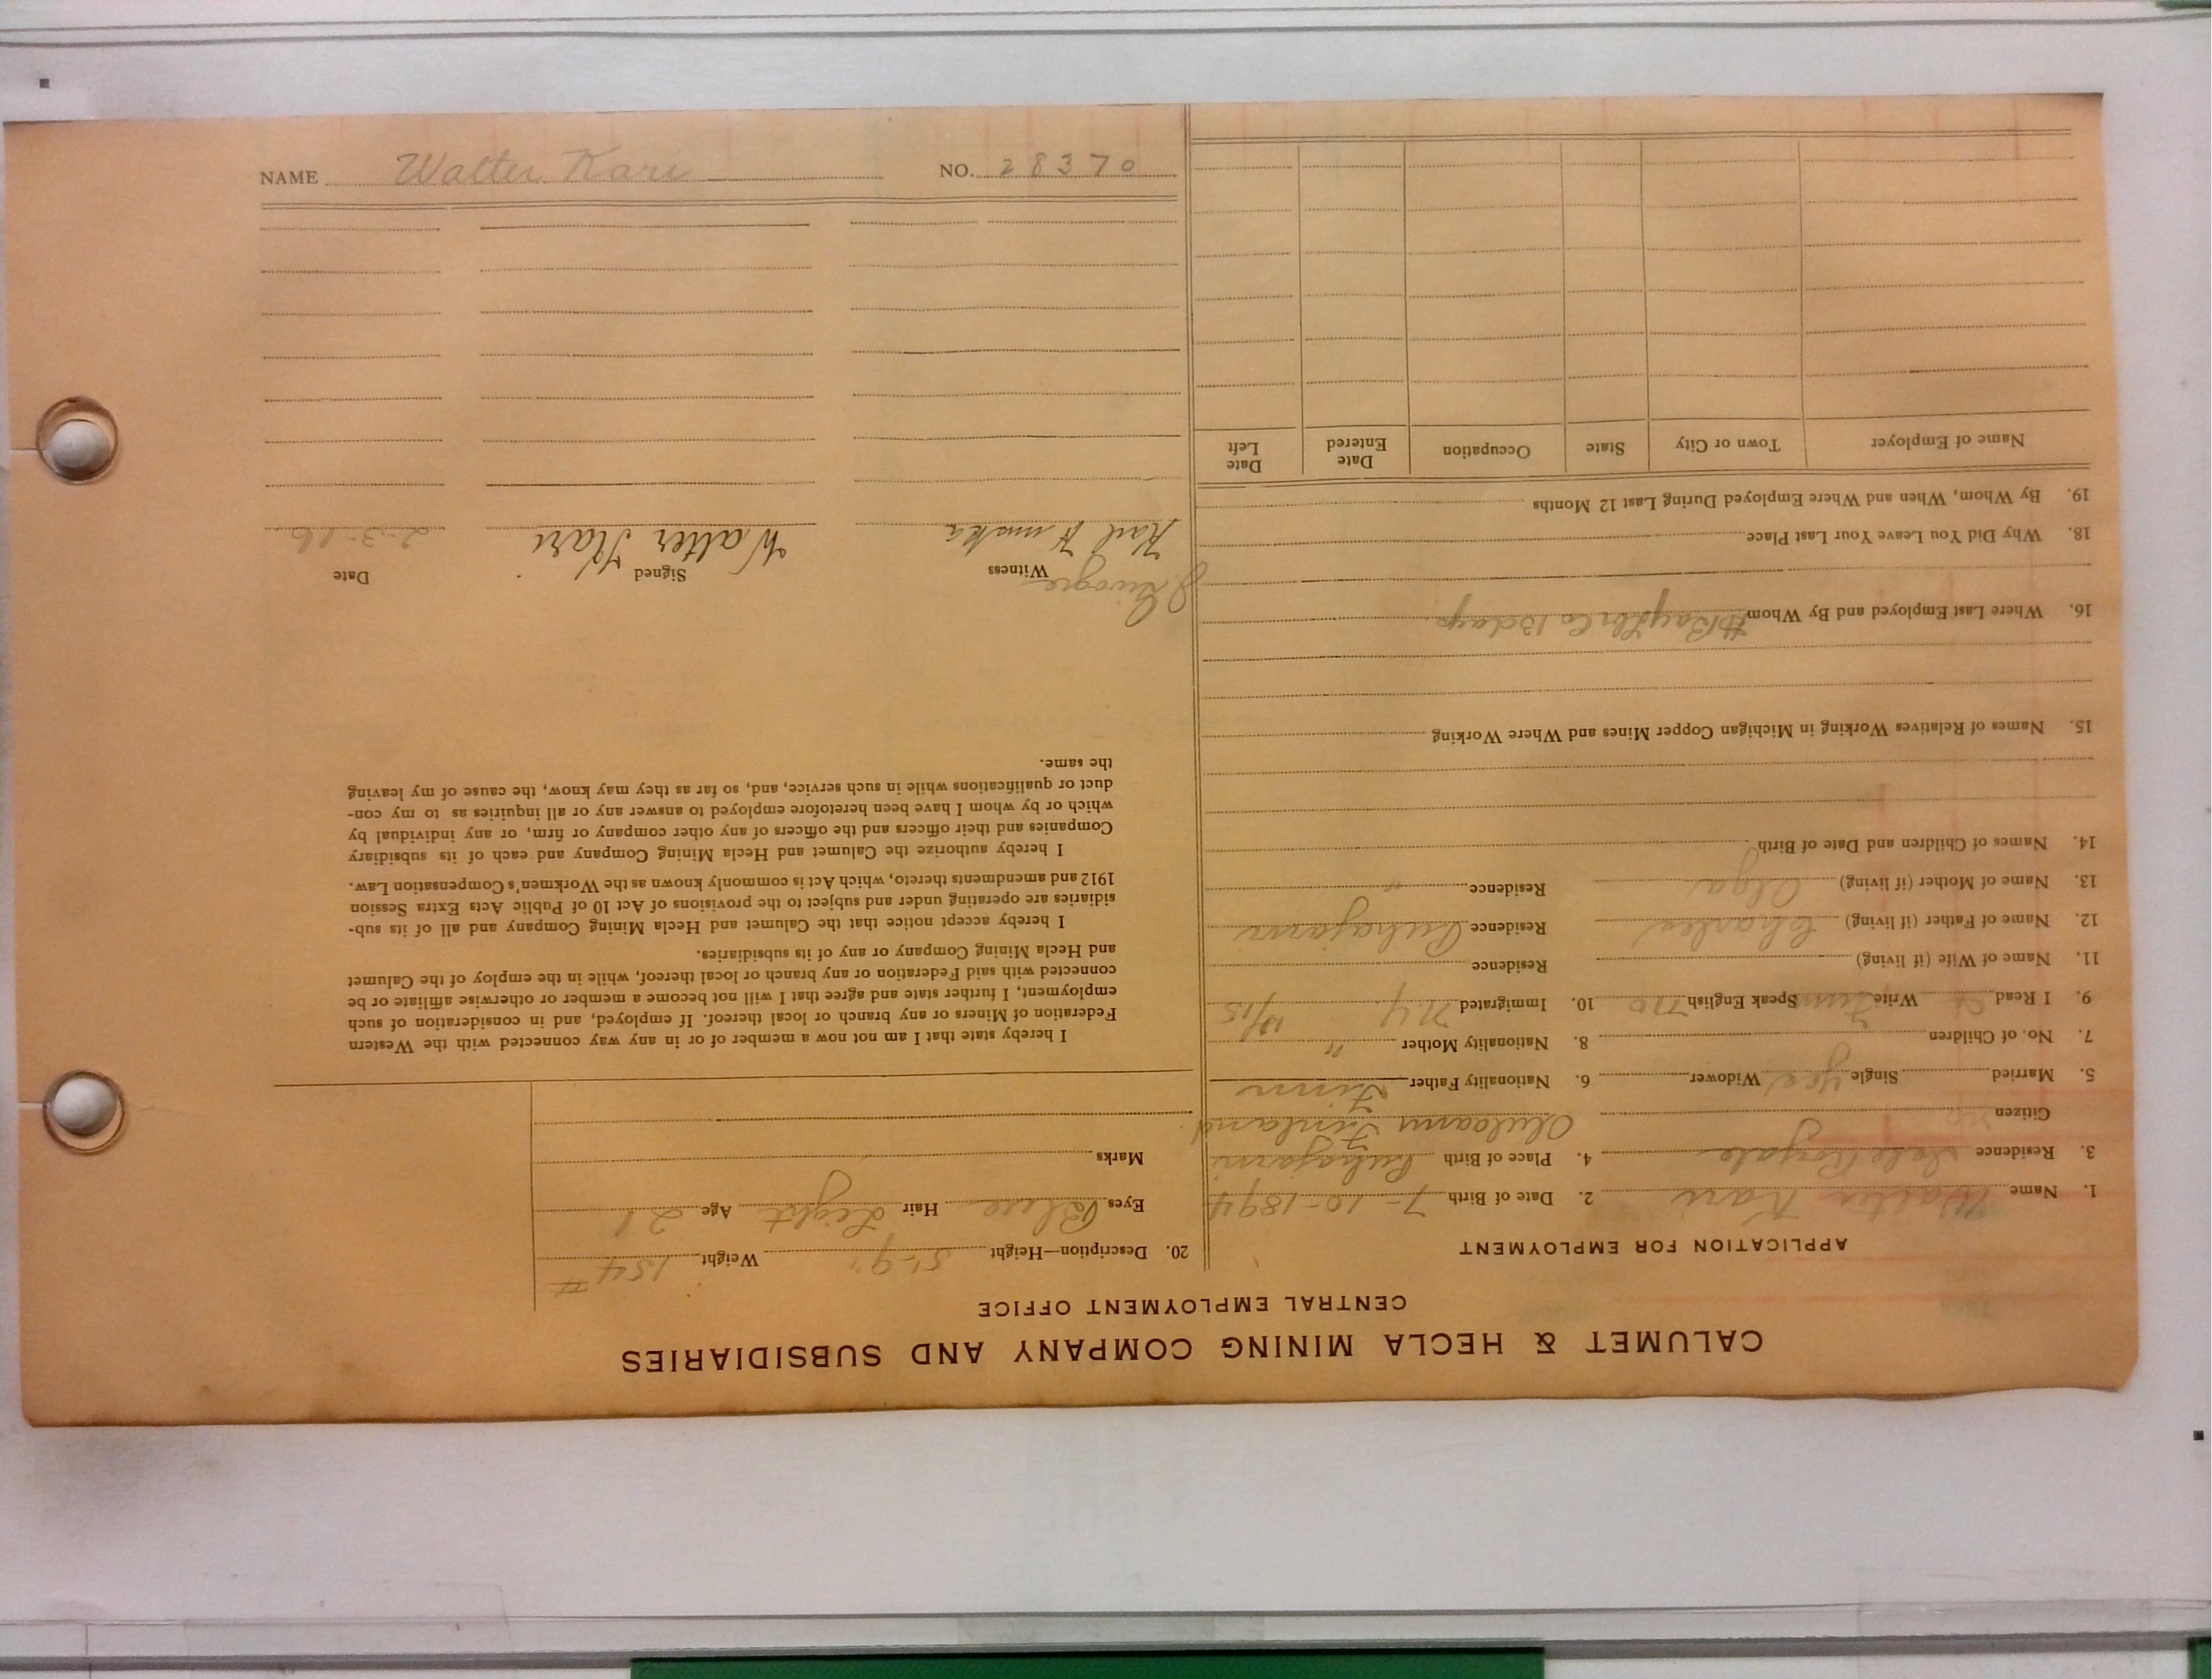 CALUMET & HECLA MINING COMPANY AND SUBSIDIARIES
CENTRAL EMPLOYMENT OFFICE
APPLICATION FOR EMPLOYMENT
1. Name Walter Kari 2. Date of Birth 7-10-1894
3. Residence Isle Royale 4. Place of Birth Pyhajarvi
Citizen Finland
5. Married Single yes Widower 6. Nationality Father Finn
7. No. of Children 8. Nationality Mother "
9. I Read Write Finn Speak English no 10. Immigrated N.Y.
11. Name of Wife (if living) Residence
12. Name of Father (if living) Charles Residence Pyhajarvi
13. Name of Mother (if living) Olga Residence "
14. Names of Children and Date of Birth
15. Names of Relatives Working in Michigan Copper Mines and Where Working
16. Where Last Employed and By Whom 13 days
18. Why Did You Leave Your Last Place
19. By Whom, When and Where Employed During Last 12 Months
Name of Employer Town or City State Occupation Date Entered Date Left
20. Description—Height 5'-9" Weight 154 #
Eyes Blue Hair Light Age 21
Marks
I hereby state that I am not now a member of or in any way connected with the Western
Federation of Miners or any branch or local thereof. If employed, and in consideration of such
employment, I further state and agree that I will not become a member or otherwise affiliate or be
connected with said Federation or any branch or local thereof, while in the employ of the Calumet
and Hecla Mining Company or any of its subsidiaries.
I hereby accept notice that the Calumet and Hecla Mining Company and all of its sub-
sidiaries are operating under and subject to the provisions of Act 10 of Public Acts Extra Session
1912 and amendments thereto, which Act is commonly known as the Workmen's Compensation Law.
I hereby authorize the Calumet and Hecla Mining Company and each of its subsidiary
Companies and their officers and the officers of any other company or firm, or any individual by
which or by whom I have been heretofore employed to answer any or all inquiries as to my con-
duct or qualifications while in such service, and, so far as they may know, the cause of my leaving
the same.
Witness Signed Date
Walter Kari 2-3-16
NAME Walter Kari NO. 28370